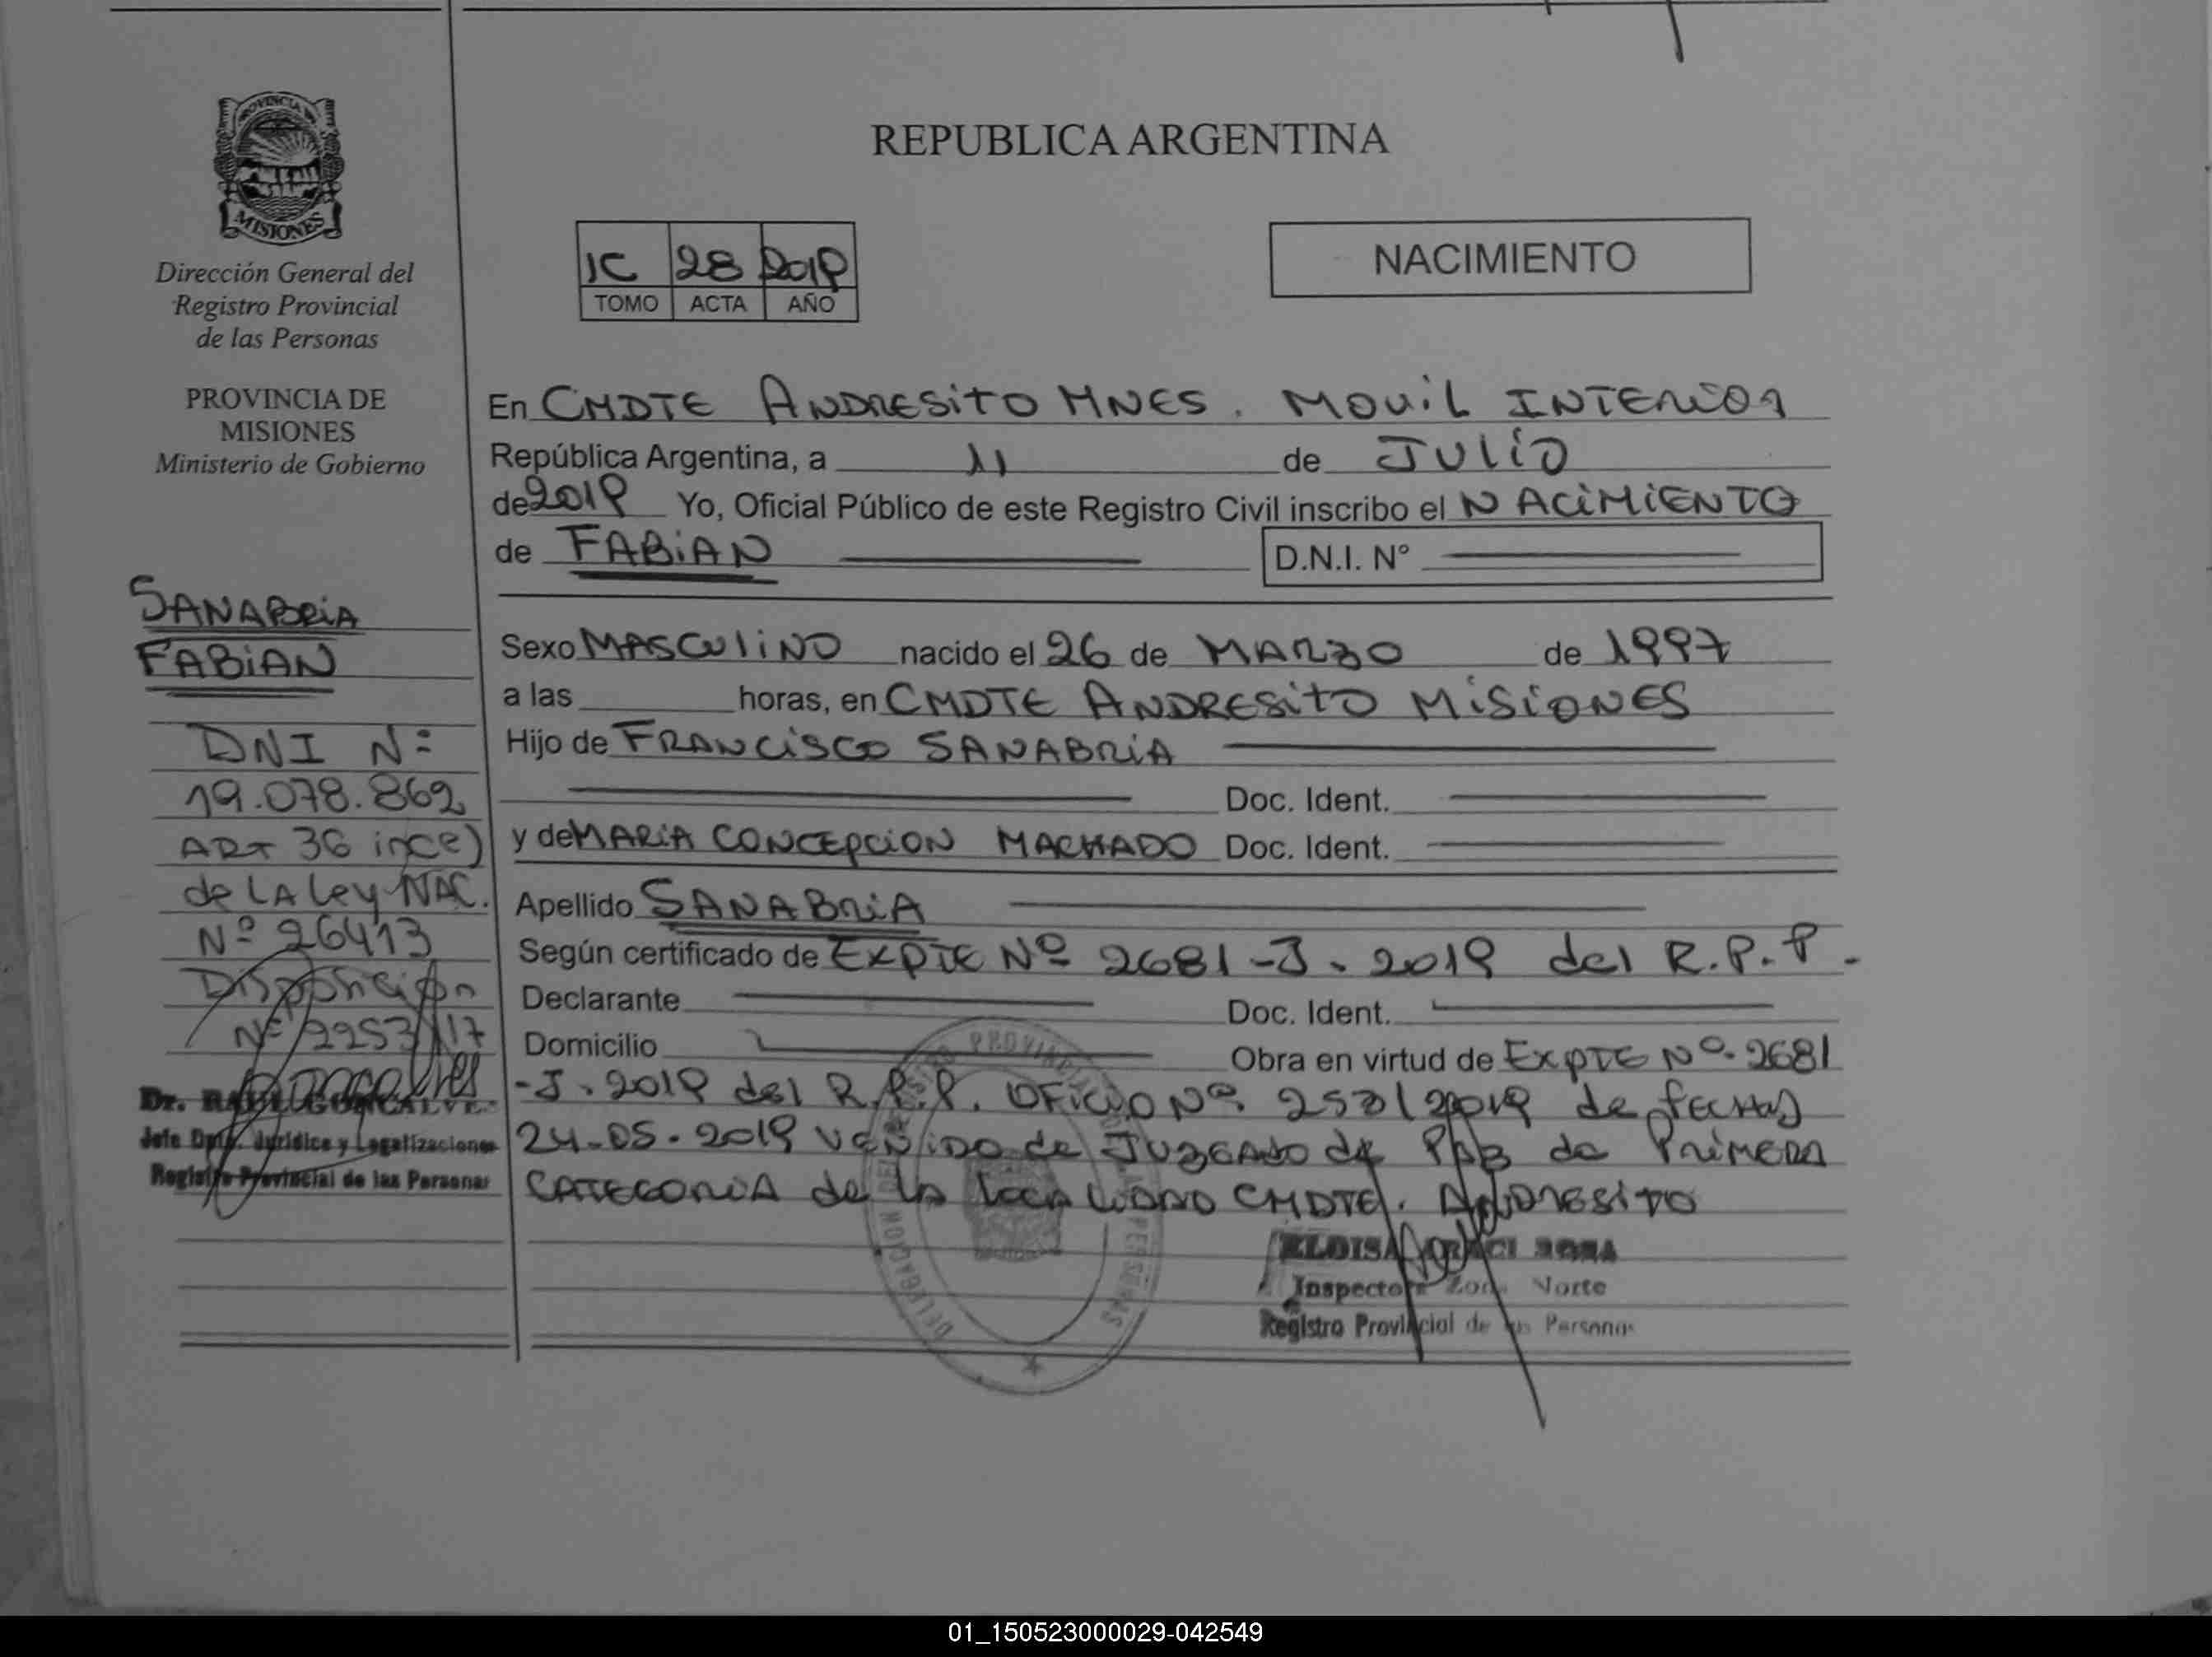 PROVINCIA DE
MISIONES
Dirección General del
Registro Provincial
de las Personas
PROVINCIA DE
MISIONES
Ministerio de Gobierno
SANABRIA
FABIAN
DNI Nº
19.078.862
ART 36 inc e)
de LA Ley NAC.
Nº 26413
Disposición
Nº 2253/17
Dr. RAUL GONCALVES
Jefe Dpto. Jurídico y Legalizaciones
Registro Provincial de las Personas
REPUBLICA ARGENTINA
1C 28 2019
TOMO ACTA AÑO
NACIMIENTO
En CMDTE ANDRESITO MNES. MOVIL INTERIOR
República Argentina, a 11 de JULIO
de 2019 Yo, Oficial Público de este Registro Civil inscribo el NACIMIENTO
de FABIAN D.N.I. N°
Sexo MASCULINO nacido el 26 de MARZO de 1997
a las horas, en CMDTE ANDRESITO MISIONES
Hijo de FRANCISCO SANABRIA
Doc. Ident.
y de MARIA CONCEPCION MACHADO Doc. Ident.
Apellido SANABRIA
Según certificado de EXPTE Nº 2681-J. 2019 del R.P.P.
Declarante Doc. Ident.
Domicilio Obra en virtud de EXPTE Nº. 2681
-J. 2019 del R.P.P. OFICIO Nº. 253/2019 de FECHA
24-05-2019 VENIDO de JUZGADO de PAZ de PRIMERA
CATEGORIA de LA LOCALIDAD CMDTE. ANDRESITO
ELOISA ROSA
Inspectora Zona Norte
Registro Provincial de las Personas
01_150523000029-042549